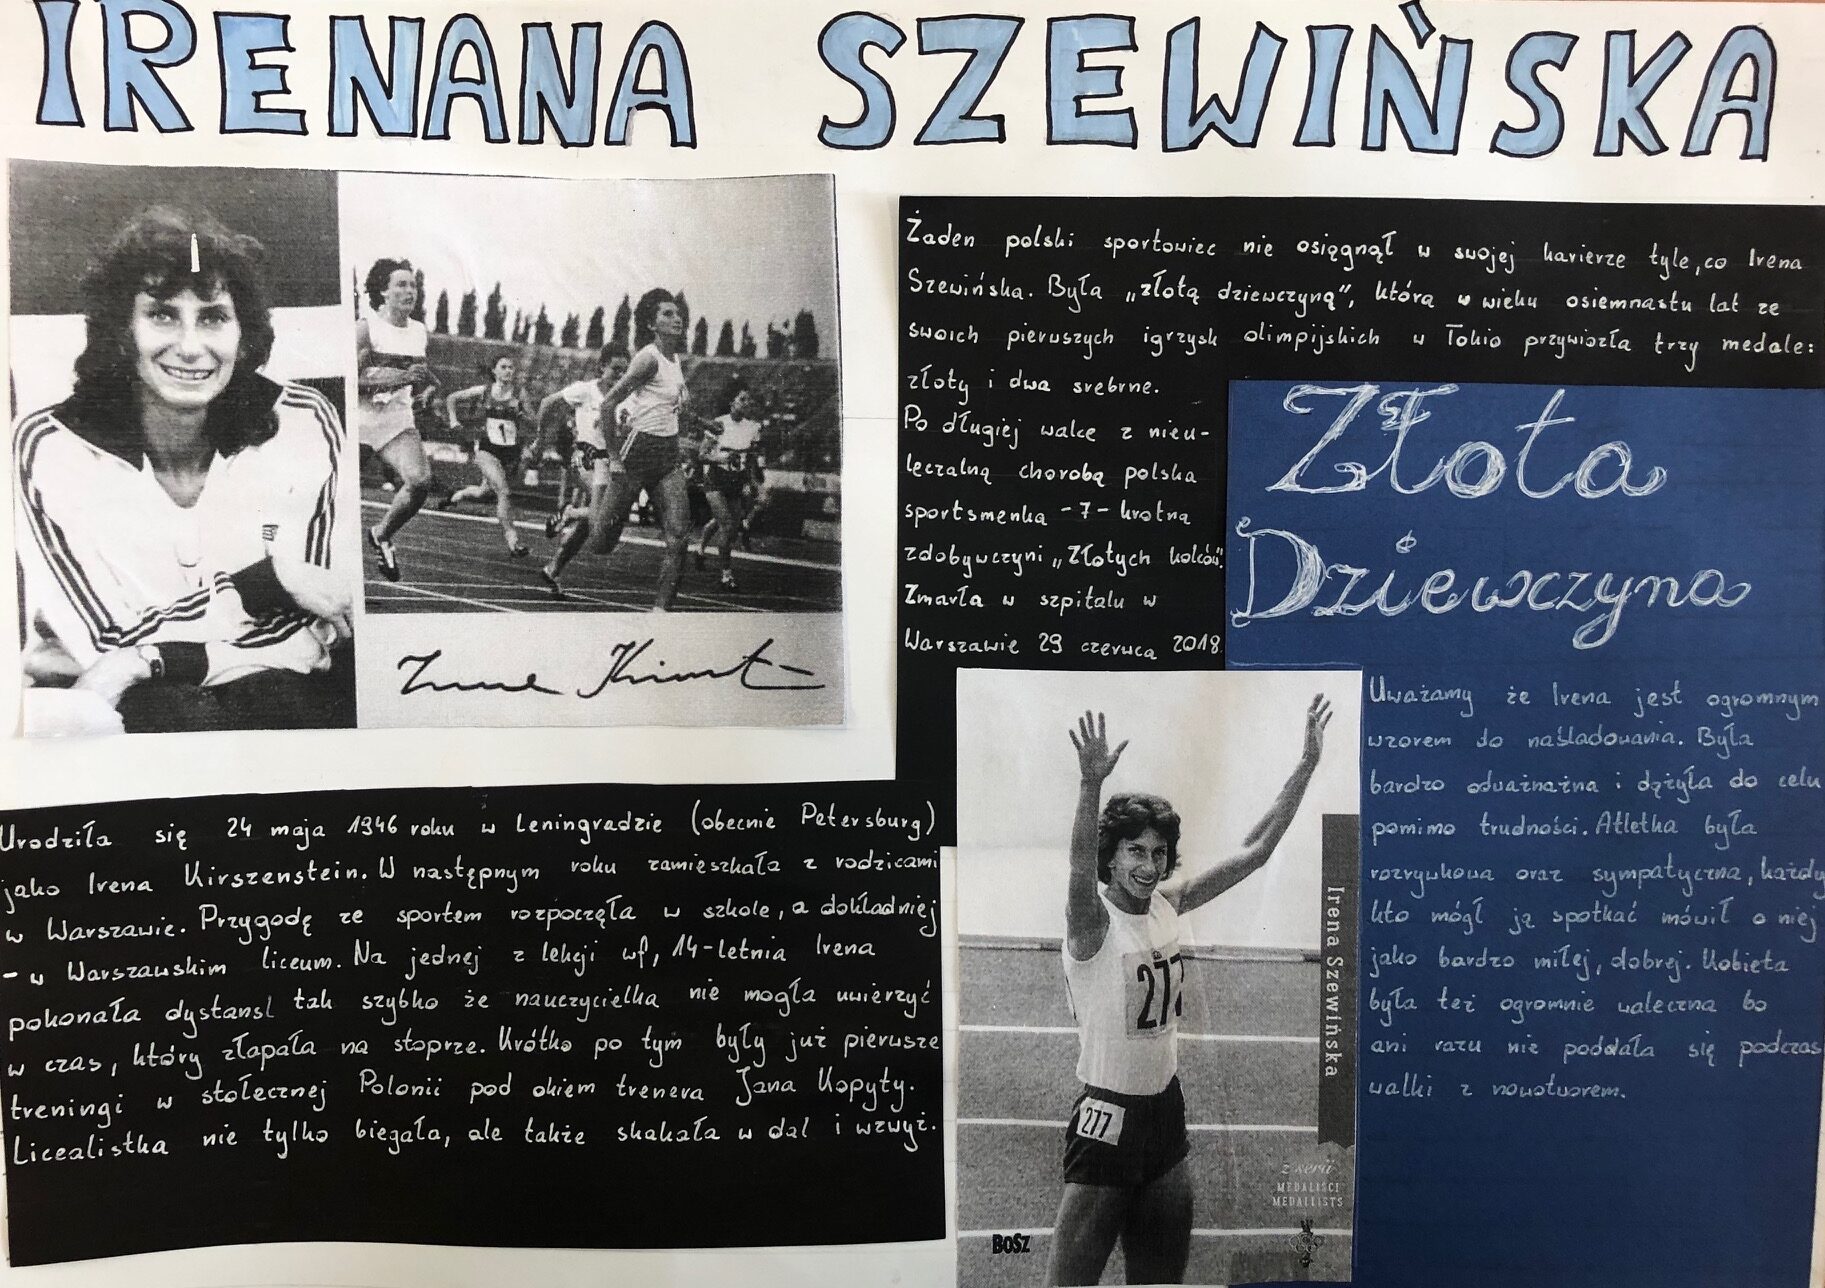 IRENANA SZEWIŃSKA
Żaden polski sportowiec nie osięgnął w swojej karierze tyle, co Irena
Szewińska. Była „złotą dziewczyną", która w wieku osiemnastu lat ze
swoich pierwszych igrzysk olimpijskich w Tokio przywiozła trzy medale:
złoty i dwa srebrne.
Po długiej walce z nieu-
leczalną chorobą polska
sportsmenka - 7 - krotna
zdobywczyni „Złotych kolców".
Zmarła w szpitalu w
Warszawie 29 czerwca 2018.
Złota
Dziewczyna
Uważamy że Irena jest ogromnym
wzorem do naśladowania. Była
bardzo odważnażna i dążyła do celu
pomimo trudności. Atletka była
rozrywkowa oraz sympatyczna, każdy
kto mógł ją spotkać mówił o niej
jako bardzo miłej, dobrej. Kobieta
była też ogromnie waleczna bo
ani razu nie poddała się podczas
walki z nowotworem.
Urodziła się 24 maja 1946 roku w Leningradzie (obecnie Petersburg)
jako Irena Kirszenstein. W następnym roku zamieszkała z rodzicami
w Warszawie. Przygodę ze sportem rozpoczęła w szkole, a dokładniej
- w Warszawskim liceum. Na jednej z lekcji wf, 14-letnia Irena
pokonała dystansl tak szybko że nauczycielka nie mogła uwierzyć
w czas, który złapała na stoprze. Krótko po tym były już pierwsze
treningi w stołecznej Polonii pod okiem trenera Jana Kopyty.
Licealistka nie tylko biegała, ale także skakała w dal i wzwyż.
1
277
277
Irena Szewińska
z serii
MEDALIŚCI
MEDALLISTS
BOSZ